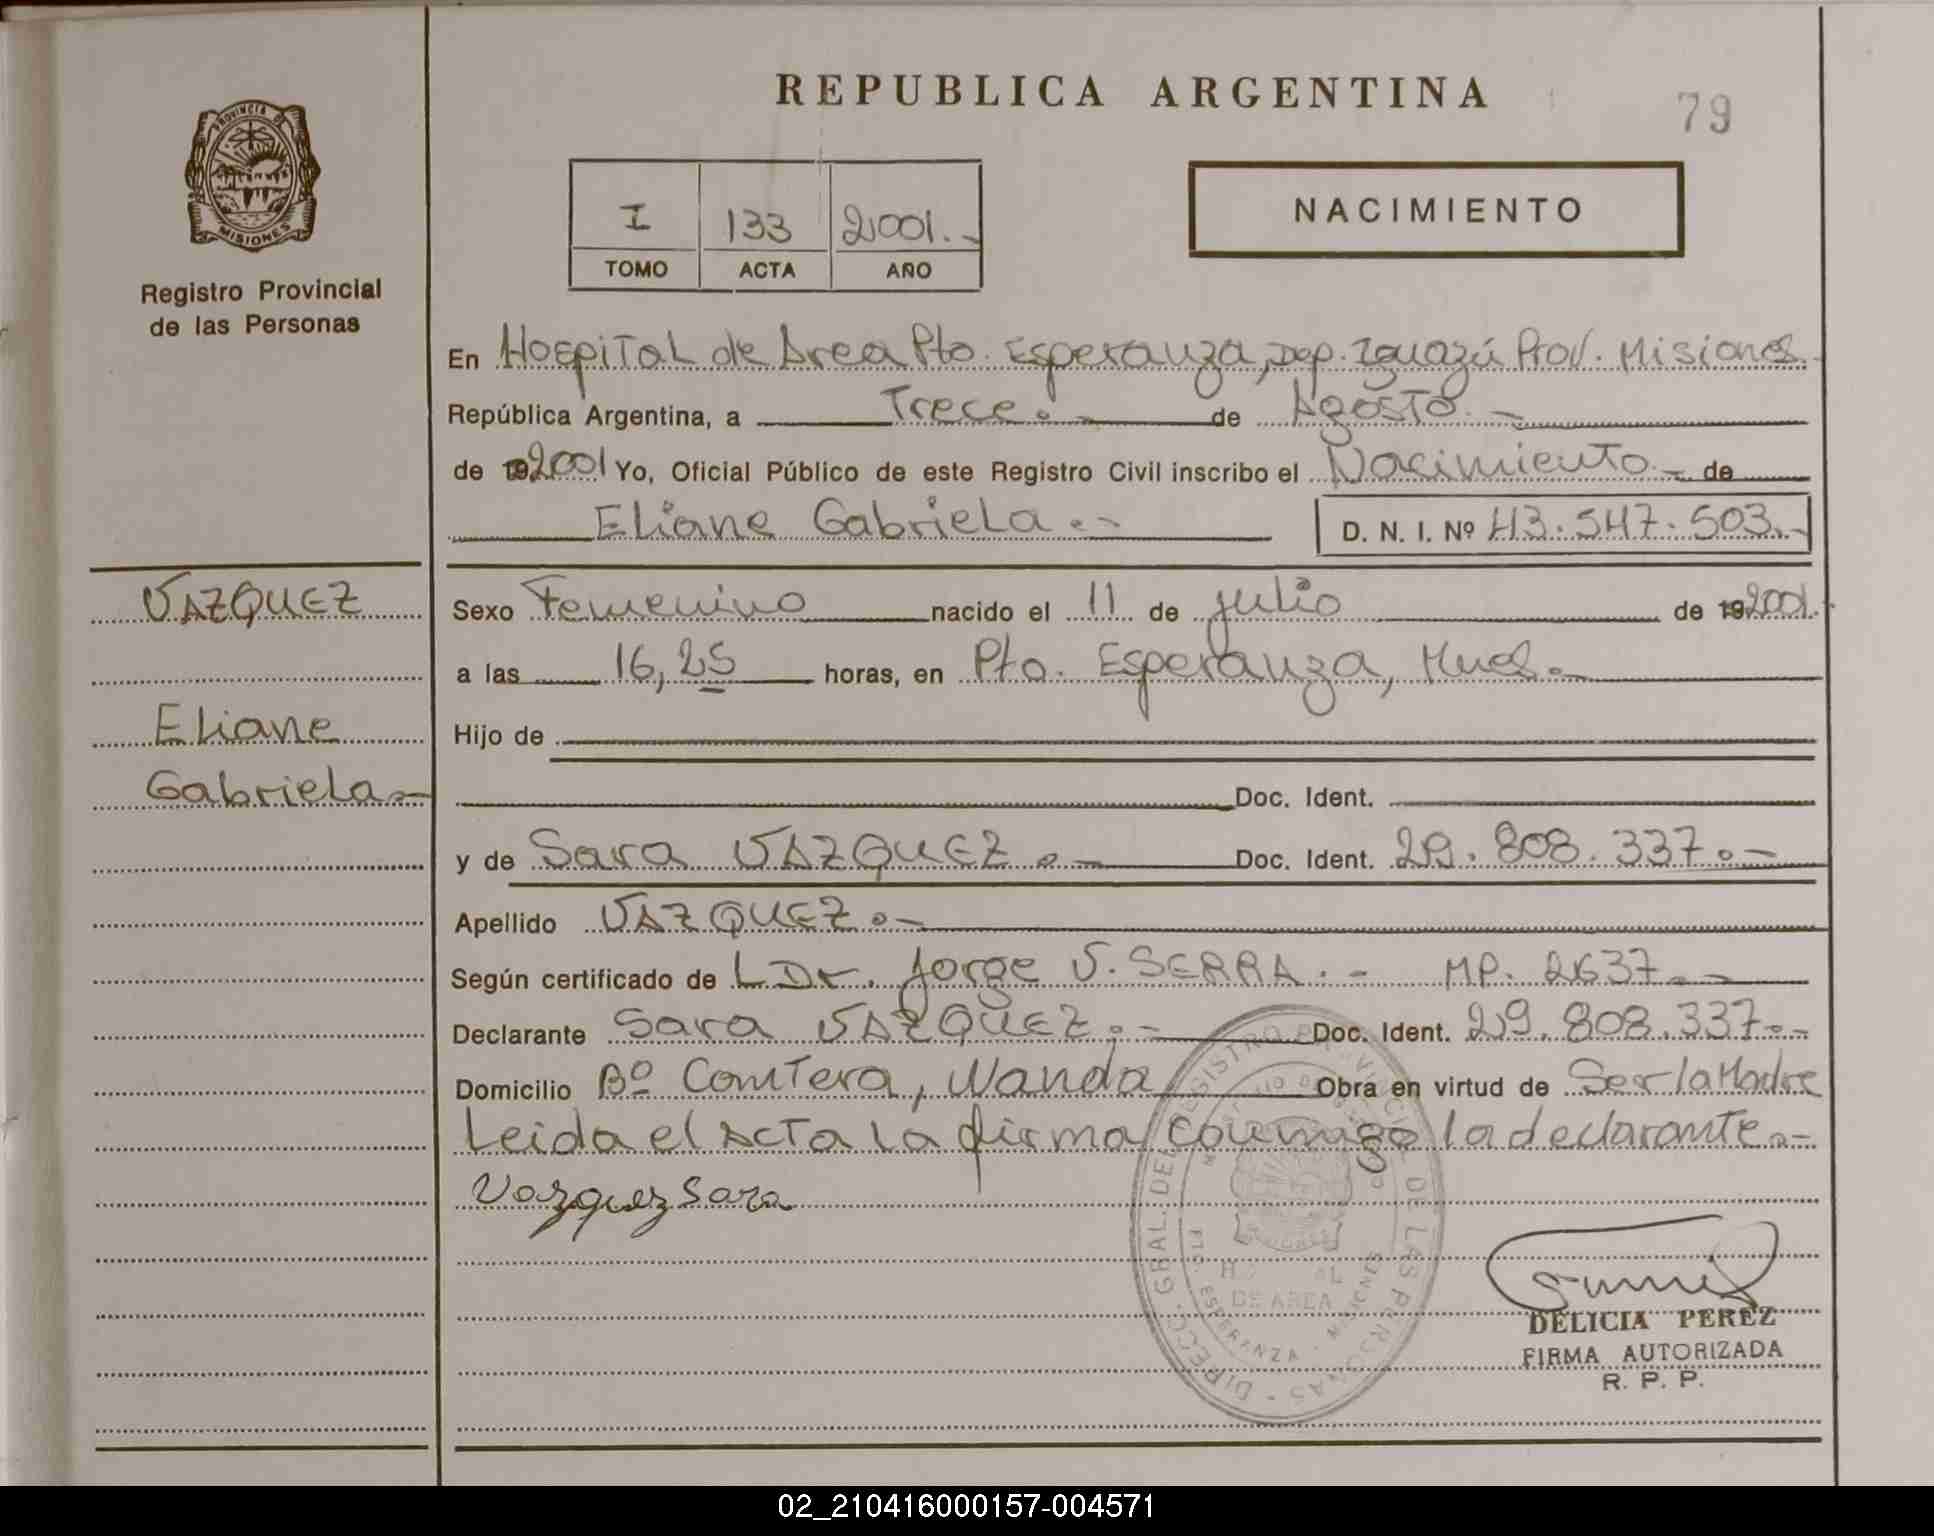 REPUBLICA ARGENTINA
79
PROVINCIA DE
MISIONES
Registro Provincial
de las Personas
I 133 2001.-
TOMO ACTA AÑO
NACIMIENTO
En Hospital de Area Pto. Esperanza, Dep. Iguazú Prov. Misiones.
República Argentina, a Trece.- de Agosto.-
de 192001 Yo, Oficial Público de este Registro Civil inscribo el Nacimiento.- de
Eliane Gabriela.-
D. N. I. Nº 43.547.503.-
VAZQUEZ
Eliane
Gabriela.-
Sexo Femenino nacido el 11 de julio de 192001.-
a las 16,25 horas, en Pto. Esperanza, Mnes.-
Hijo de
Doc. Ident.
y de Sara VAZQUEZ.- Doc. Ident. 29.808.337.-
Apellido VAZQUEZ.-
Según certificado de L Dr. Jorge V. SERRA.- MP. 2637.-
Declarante Sara VAZQUEZ.- Doc. Ident. 29.808.337.-
Domicilio Bº Comtera, Wanda Obra en virtud de Ser la Madre
Leida el Acta la firma conmigo la declarante.-
Vazquez Sara
DIRECC. GRAL. DEL REGISTRO PROVINCIAL DE LAS PERSONAS
DE AREA
PTO. ESPERANZA - MISIONES
DELICIA PEREZ
FIRMA AUTORIZADA
R. P. P.
02_210416000157-004571